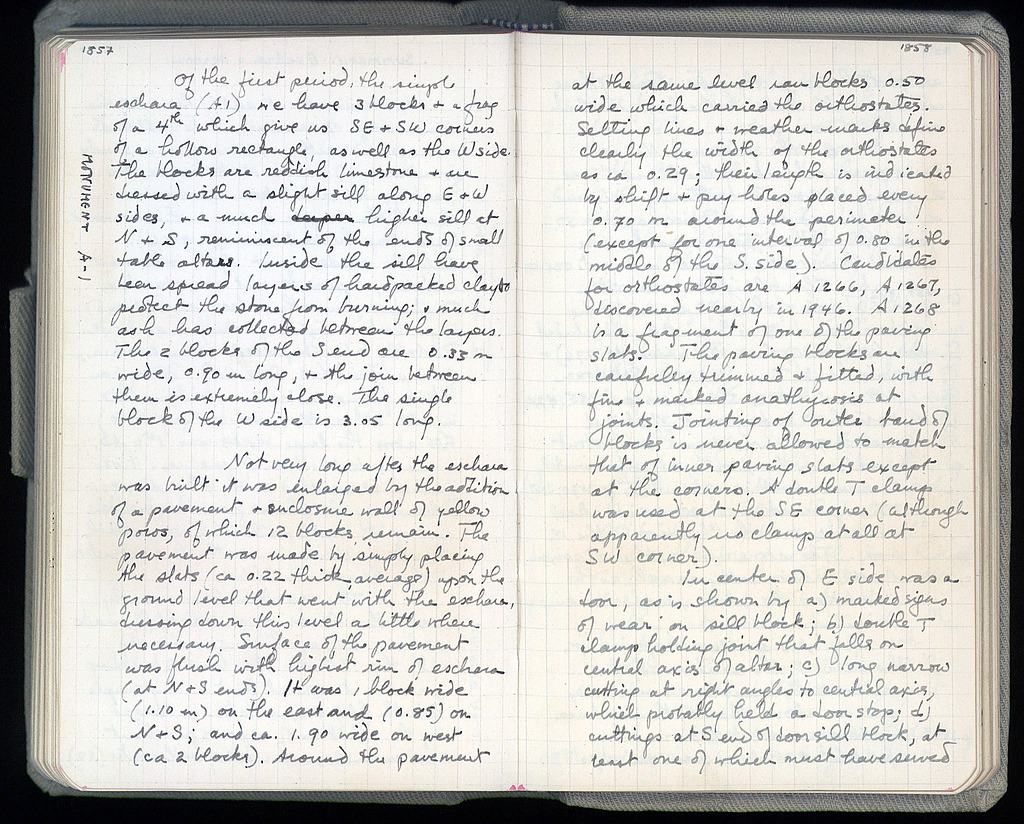 1857
MONUMENT A-1
Of the first period, the simple
eschara (A1) we have 3 blocks + a frag
of a 4th which give us SE + SW corners
of a hollow rectangle, as well as the W side.
The blocks are reddish limestone + are
dressed with a slight sill along E + W
sides, + a much deeper higher sill at
N + S, reminiscent of the ends of small
table altars. Inside the sill have
been spread layers of hardpacked clay to
protect the stone from burning; + much
ash has collected between the layers.
The 2 blocks of the S end are 0.33 m
wide, 0.90 m long, + the join between
them is extremely close. The single
block of the W side is 3.05 long.
Not very long after the eschara
was built it was enlarged by the addition
of a pavement + enclosure wall of yellow
poros, of which 12 blocks remain. The
pavement was made by simply placing
the slabs (ca 0.22 thick, average) upon the
ground level that went with the eschara,
dressing down this level a little where
necessary. Surface of the pavement
was flush with highest rim of eschara
(at N + S ends). It was 1 block wide
(1.10 m) on the east and (0.85) on
N + S; and ca. 1.90 wide on west
(ca 2 blocks). Around the pavement
1858
at the same level ran blocks 0.50
wide which carried the orthostates.
Setting lines + weather marks define
clearly the width of the orthostates
as ca 0.29; their length is indicated
by shift + pry holes placed every
0.70 m around the perimeter
(except for one interval of 0.80 in the
middle of the S. side). Candidates
for orthostates are A 1266, A 1267,
discovered nearby in 1946. A 1268
is a fragment of one of the paving
slabs. The paving blocks are
carefully trimmed + fitted, with
fine + marked anathyrosis at
joints. Jointing of outer band of
blocks is never allowed to match
that of inner paving slabs except
at the corners. A double T clamp
was used at the SE corner (although
apparently no clamps at all at
SW corner).
In center of E side was a
door, as is shown by a) marked signs
of wear on sill block; b) double T
clamp holding joint that falls on
central axis of altar; c) long narrow
cutting at right angles to central axis,
which probably held a door stop; d)
cuttings at S end of door sill block, at
least one of which must have served